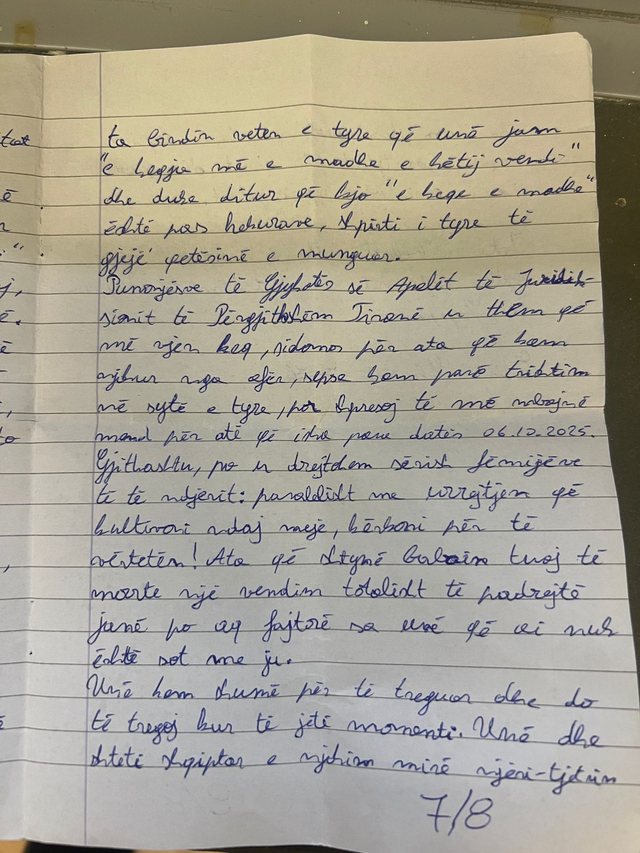 itat
ta bindin veten e tyre që unë jam
ë
"e keqja më e madhe e këtij vendi"
dhe duke ditur që kjo "e keqe e madhe"
"
është pas hekurave, shpirti i tyre të
j,
gjejë qetësinë e munguar.
ë.
Punonjësve të Gjykatës së Apelit të Juridik-
sionit të Përgjithshëm Tiranë u them që
më vjen keq, sidomos për ata që kam
njohur nga afër, sepse kam parë trishtim
në sytë e tyre, por shpresoj të më mbajnë
mend për atë që isha para datës 06.10.2025.
Gjithashtu, po u drejtohem sërish fëmijëve
të të ndjerit: paralelisht me urrejtjen që
kultivoni ndaj meje, kërkoni për të
vërtetën! Ata që shtynë babain tuaj të
merrte një vendim totalisht të padrejtë
janë po aq fajtorë sa unë që ai nuk
është sot me ju.
Unë kam shumë për të treguar dhe do
të tregoj kur të jetë momenti. Unë dhe
shteti shqiptar e njohim mirë njëri-tjetrin
7/8